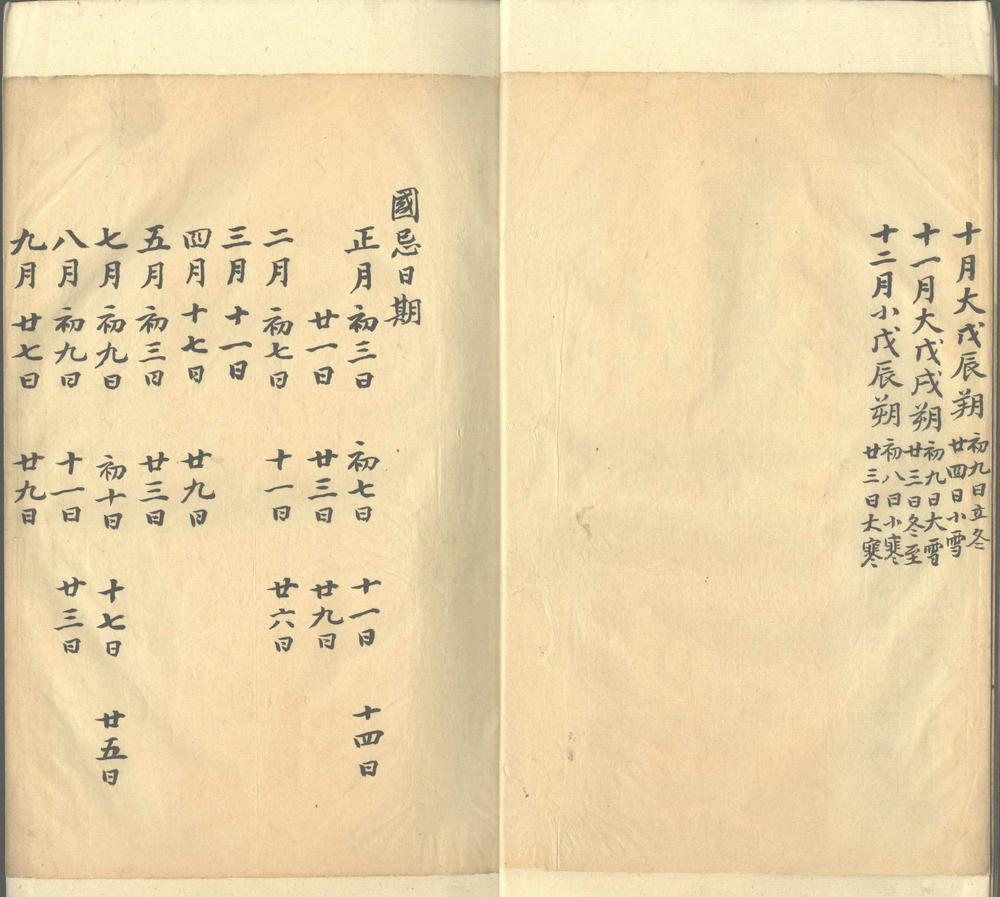 十月大戊辰朔初九日立冬廿四日小雪
十一月大戊戌朔初九日大雪廿三日冬至
十二月小戊辰朔初八日小寒廿三日大寒
國忌日期
正月初三日 初七日 十一日 十四日
廿一日 廿三日 廿九日
二月初七日 十一日 廿六日
三月十一日
四月十七日 廿九日
五月初三日 廿三日
七月初九日 初十日 十七日 廿五日
八月初九日 十一日 廿三日
九月廿七日 廿九日